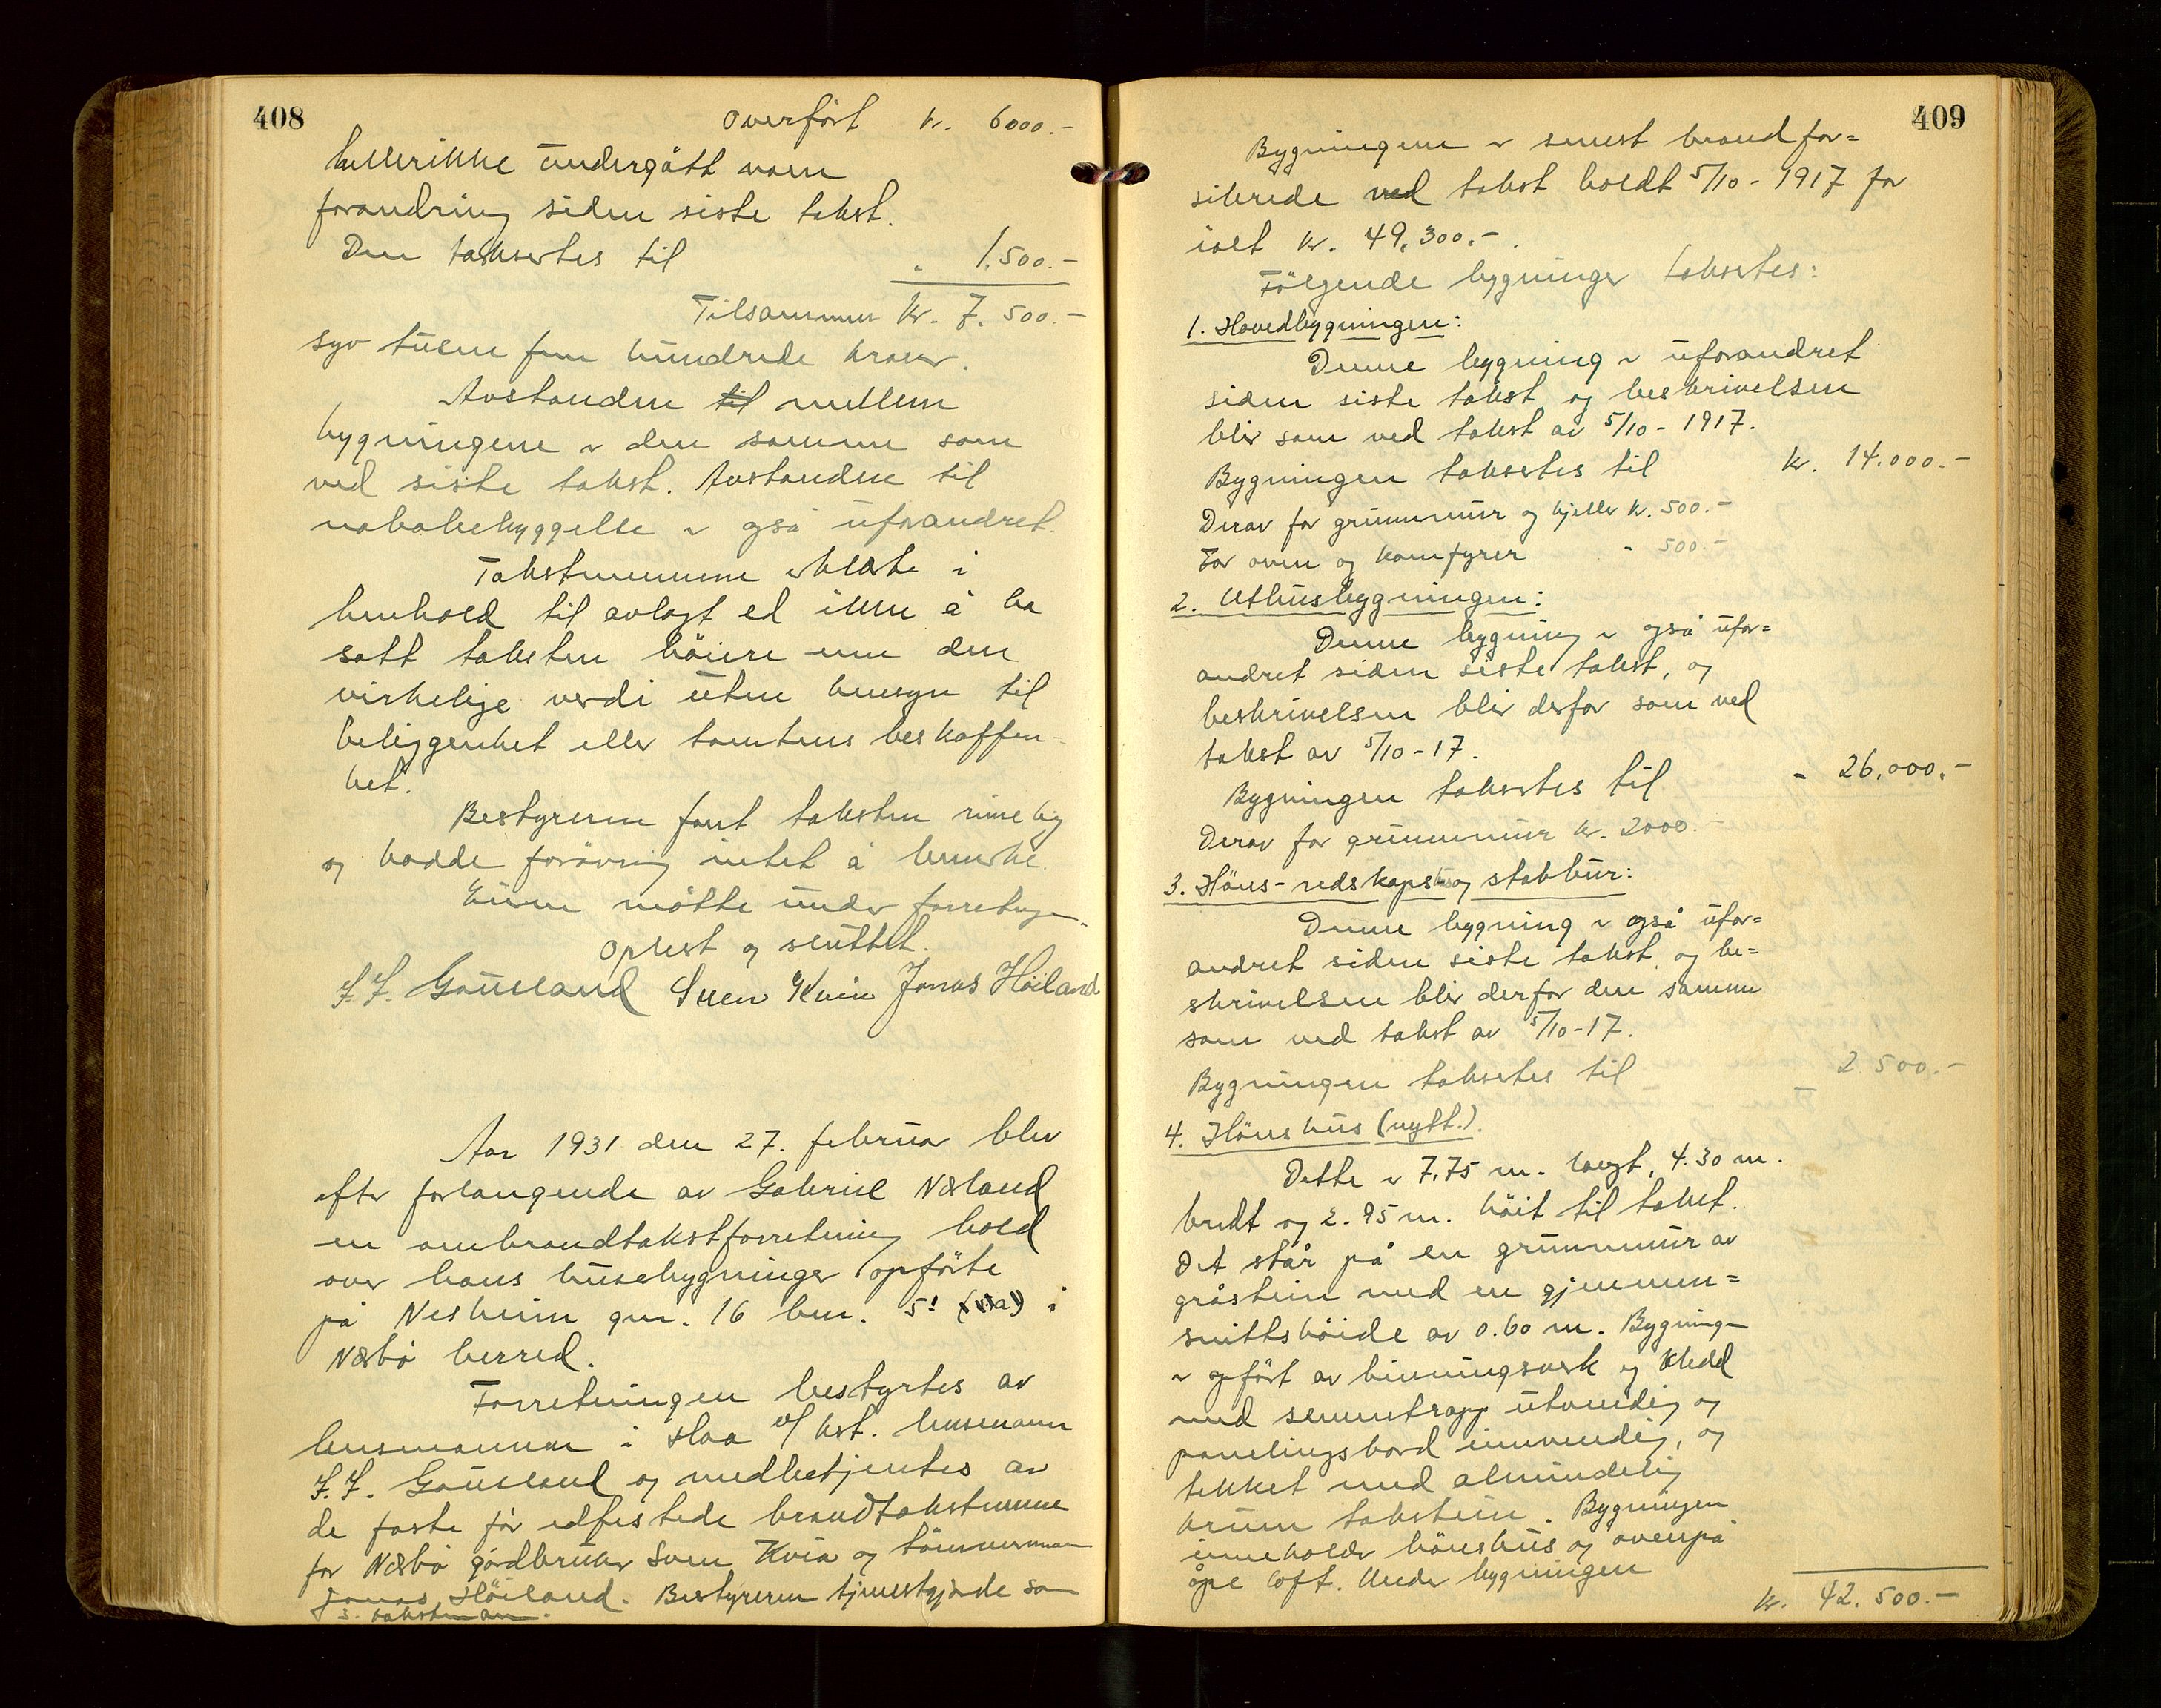 408
Overført kr. 6000.-
hellerikke undergått noen
forandring siden siste takst.
Den taksertes til " 1.500.-
Tilsammen kr. 7.500.-
syv tusen fem hundrede kroner.
Avstanden til mellem
bygningene er den samme som
ved siste takst. Avstanden til
nabobebyggelse er også uforandret.
Takstmennene erklærte i
henhold til avlagt ed ikke å ha
satt taksten höiere enn den
virkelige verdi uten hensyn til
beliggenhet eller tomtens beskaffen-
het.
Bestyreren fant taksten rimelig
og hadde forövrig intet å bemerke.
Eieren møtte under forretningen.
Oplest og sluttet.
Gauseland Sven Kvia Jonas Høiland
Aar 1931 den 27. februar blev
efter forlangende av Gabriel Næland
en ombrandtakstforretning hold
over hans husebygninger opförte
på Nesheim gnr. 16 bnr. 5 i
Nærbø herred.
Forretningen bestyrtes av
lensmannen i Haa v/ kst. lensmann
Gauseland og medbetjentes av
de faste før edfestede brandtakstmenn
for Nærbø gårdbruker Sven Kvia og tömmermann
Jonas Höiland. Bestyreren tjenestgjorde som
3. takstmann.
409
Bygningene er senest brandfor=
sikrede ved takst holdt 5/10 - 1917 for
ialt kr. 49.300.-.
Følgende bygninger taksertes:
1. Hovedbygningen:
Denne bygning er uforandret
siden siste takst og beskrivelsen
blir som ved takst av 5/10 - 1917.
Bygningen taksertes til kr. 14.000.-
Derav for grunnmur og kjeller kr. 500.-
For ovner og komfyrer - 500.-
2. Uthusbygningen:
Denne bygning er også ufor=
andret siden siste takst, og
beskrivelsen blir derfor som ved
takst av 5/10-17.
Bygningen taksertes til - 26.000.-
Derav for grunnmur kr. 2000.-
3. Höns- redskapshus og stabbur:
Denne bygning er også ufor=
andret siden siste takst og be=
skrivelsen blir derfor den samme
som ved takst av 5/10-17.
Bygningen taksertes til 2.500.-
4. Hönshus (nytt.).
Dette er 7.75 m. langt, 4.30 m.
bredt og 2.95 m. höit til taket.
Det står på en grunnmur av
gråstein med en gjennem=
snittshöide av 0.60 m. Bygningen
er opfört av binningsverk og kledd
med sementrapp utvendig og
panelingsbord innvendig, og
tekket med almindelig
krum takstein. Bygningen
inneholder hönshus og ovenpå
åpe loft. Under bygningen
kr. 42.500.-